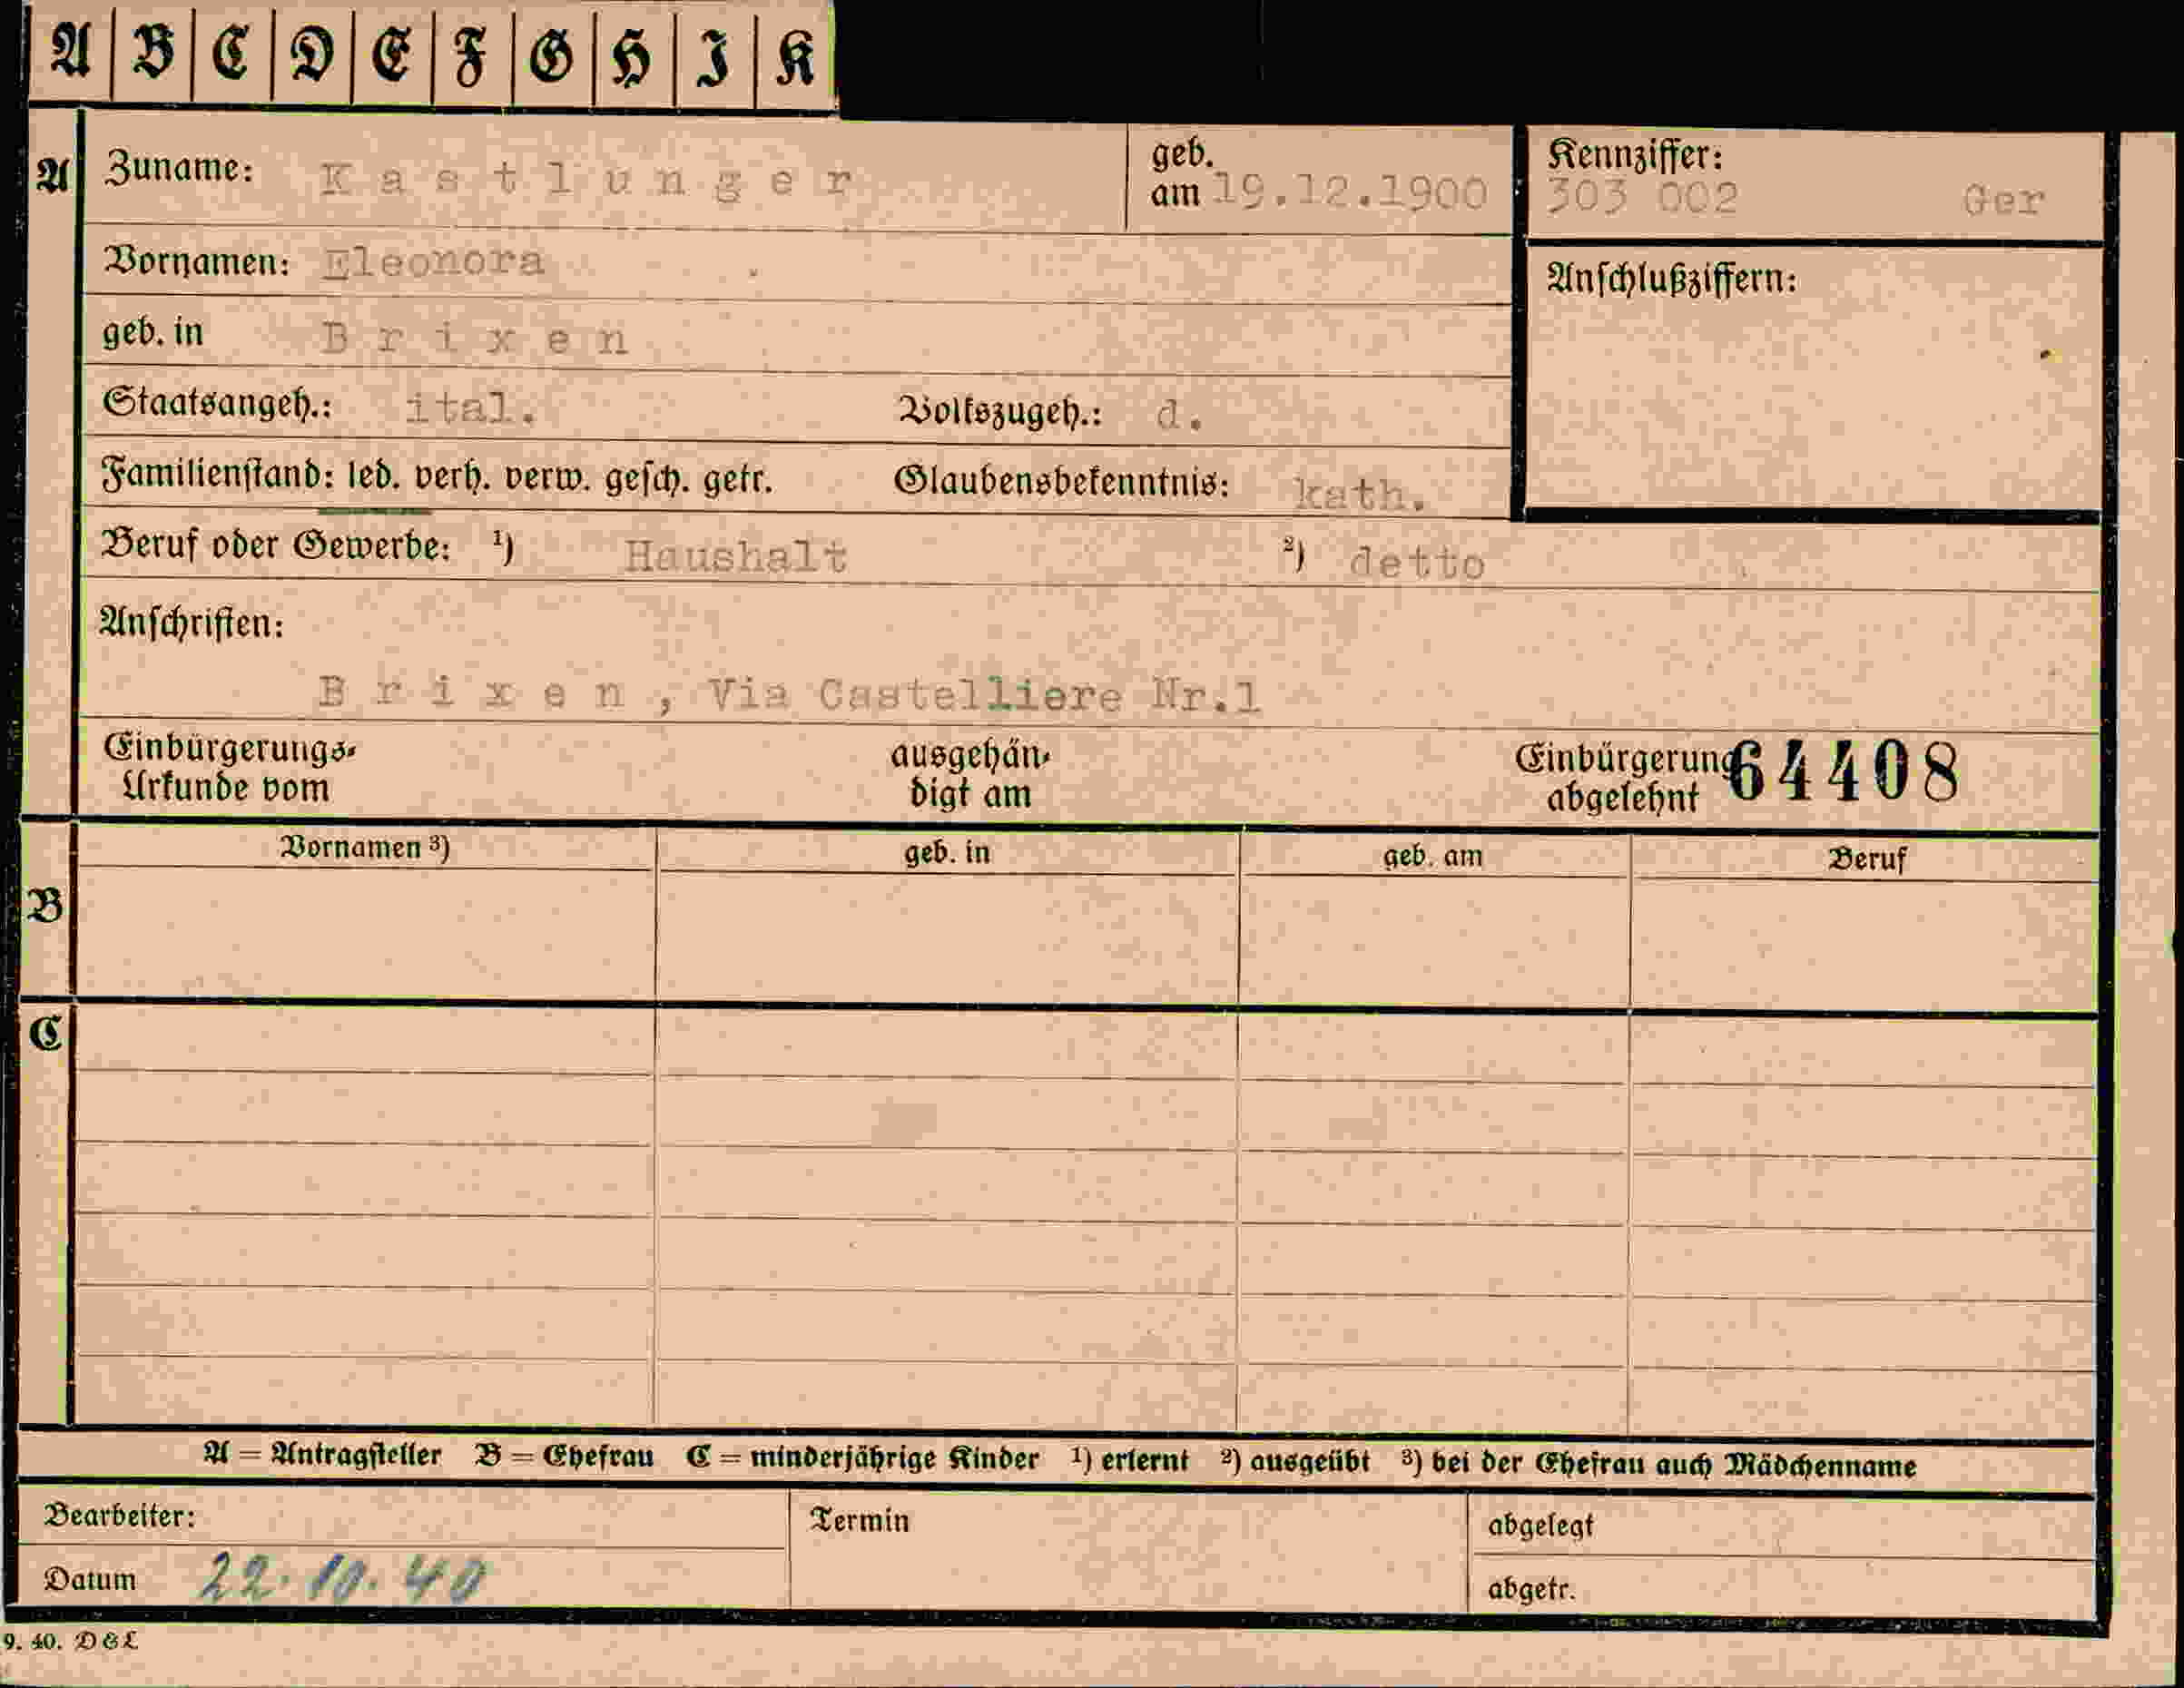 A B C D E F G H I K
A Zuname: Kastlunger geb. am 19.12.1900 Kennziffer: 303 002 Ger
Vornamen: Eleonora Anschlußziffern:
geb. in Brixen
Staatsangeh.: ital. Volkszugeh.: d.
Familienstand: led. verh. verw. gesch. getr. Glaubensbekenntnis: kath.
Beruf oder Gewerbe: ¹) Haushalt ²) detto
Anschriften:
Brixen, Via Castelliere Nr.1
Einbürgerungs- ausgehän- Einbürgerung 64408
Urkunde vom digt am abgelehnt
Vornamen ³) geb. in geb. am Beruf
B
C
A = Antragsteller B = Ehefrau C = minderjährige Kinder ¹) erlernt ²) ausgeübt ³) bei der Ehefrau auch Mädchenname
Bearbeiter: Termin abgelegt
Datum 22.10.40 abgetr.
9. 40. D & L